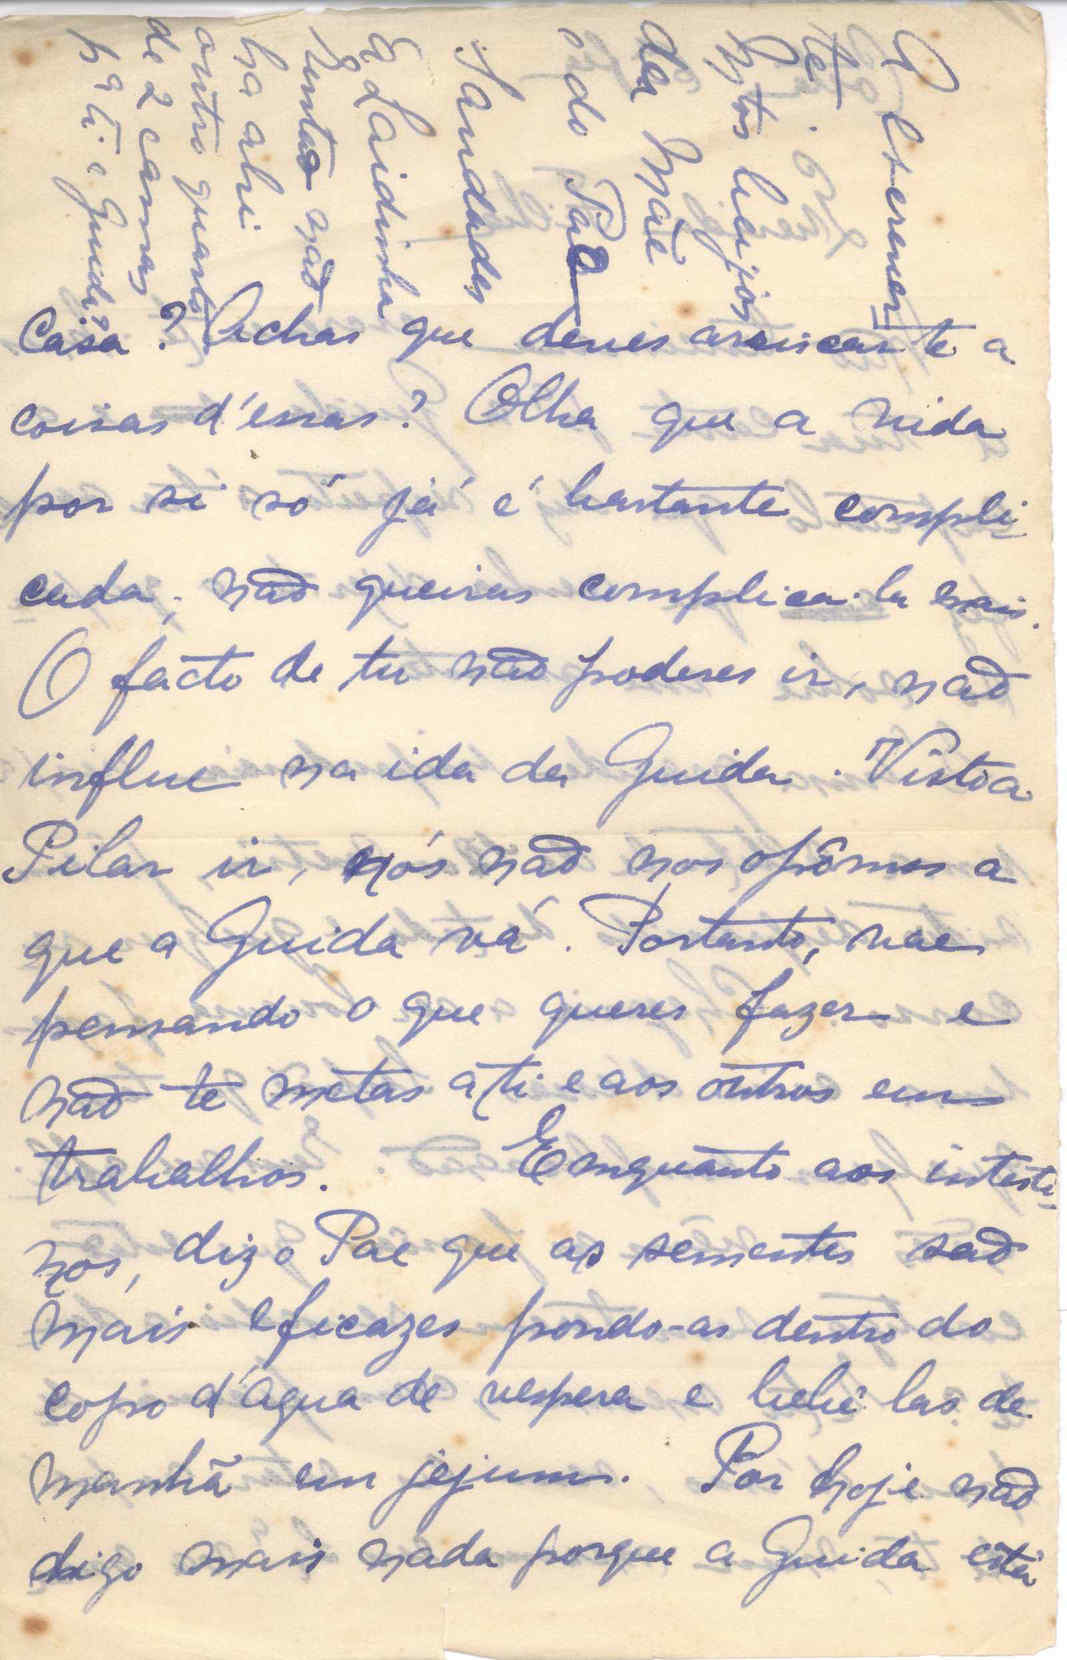 Casa? Achas que deves arriscar-te a
coisas d'essas? Olha que a vida
por si só já é bastante compli-
cada, não queiras complica-la mais.
O facto de tu não poderes ir, não
influe na ida da Guida. Visto a
Pilar ir, nós não nos opômos a
que a Guida vá. Portanto, vae
pensando o que queres fazer e
não te metas a ti e aos outros em
trabalhos. Emquanto aos intesti-
nos, diz o Pae que as sementes são
mais eficazes pondo-as dentro do
copo d'agua de vespera e bebê-las de
manhã em jejum. Por hoje não
digo mais nada porque a Guida está
a escrever
te.
Mtos beijos
da Mãe
e do Pae
Saudades
Laidinha
não
ha ahi
outro quarto
de 2 camas
pª ti e Guida?